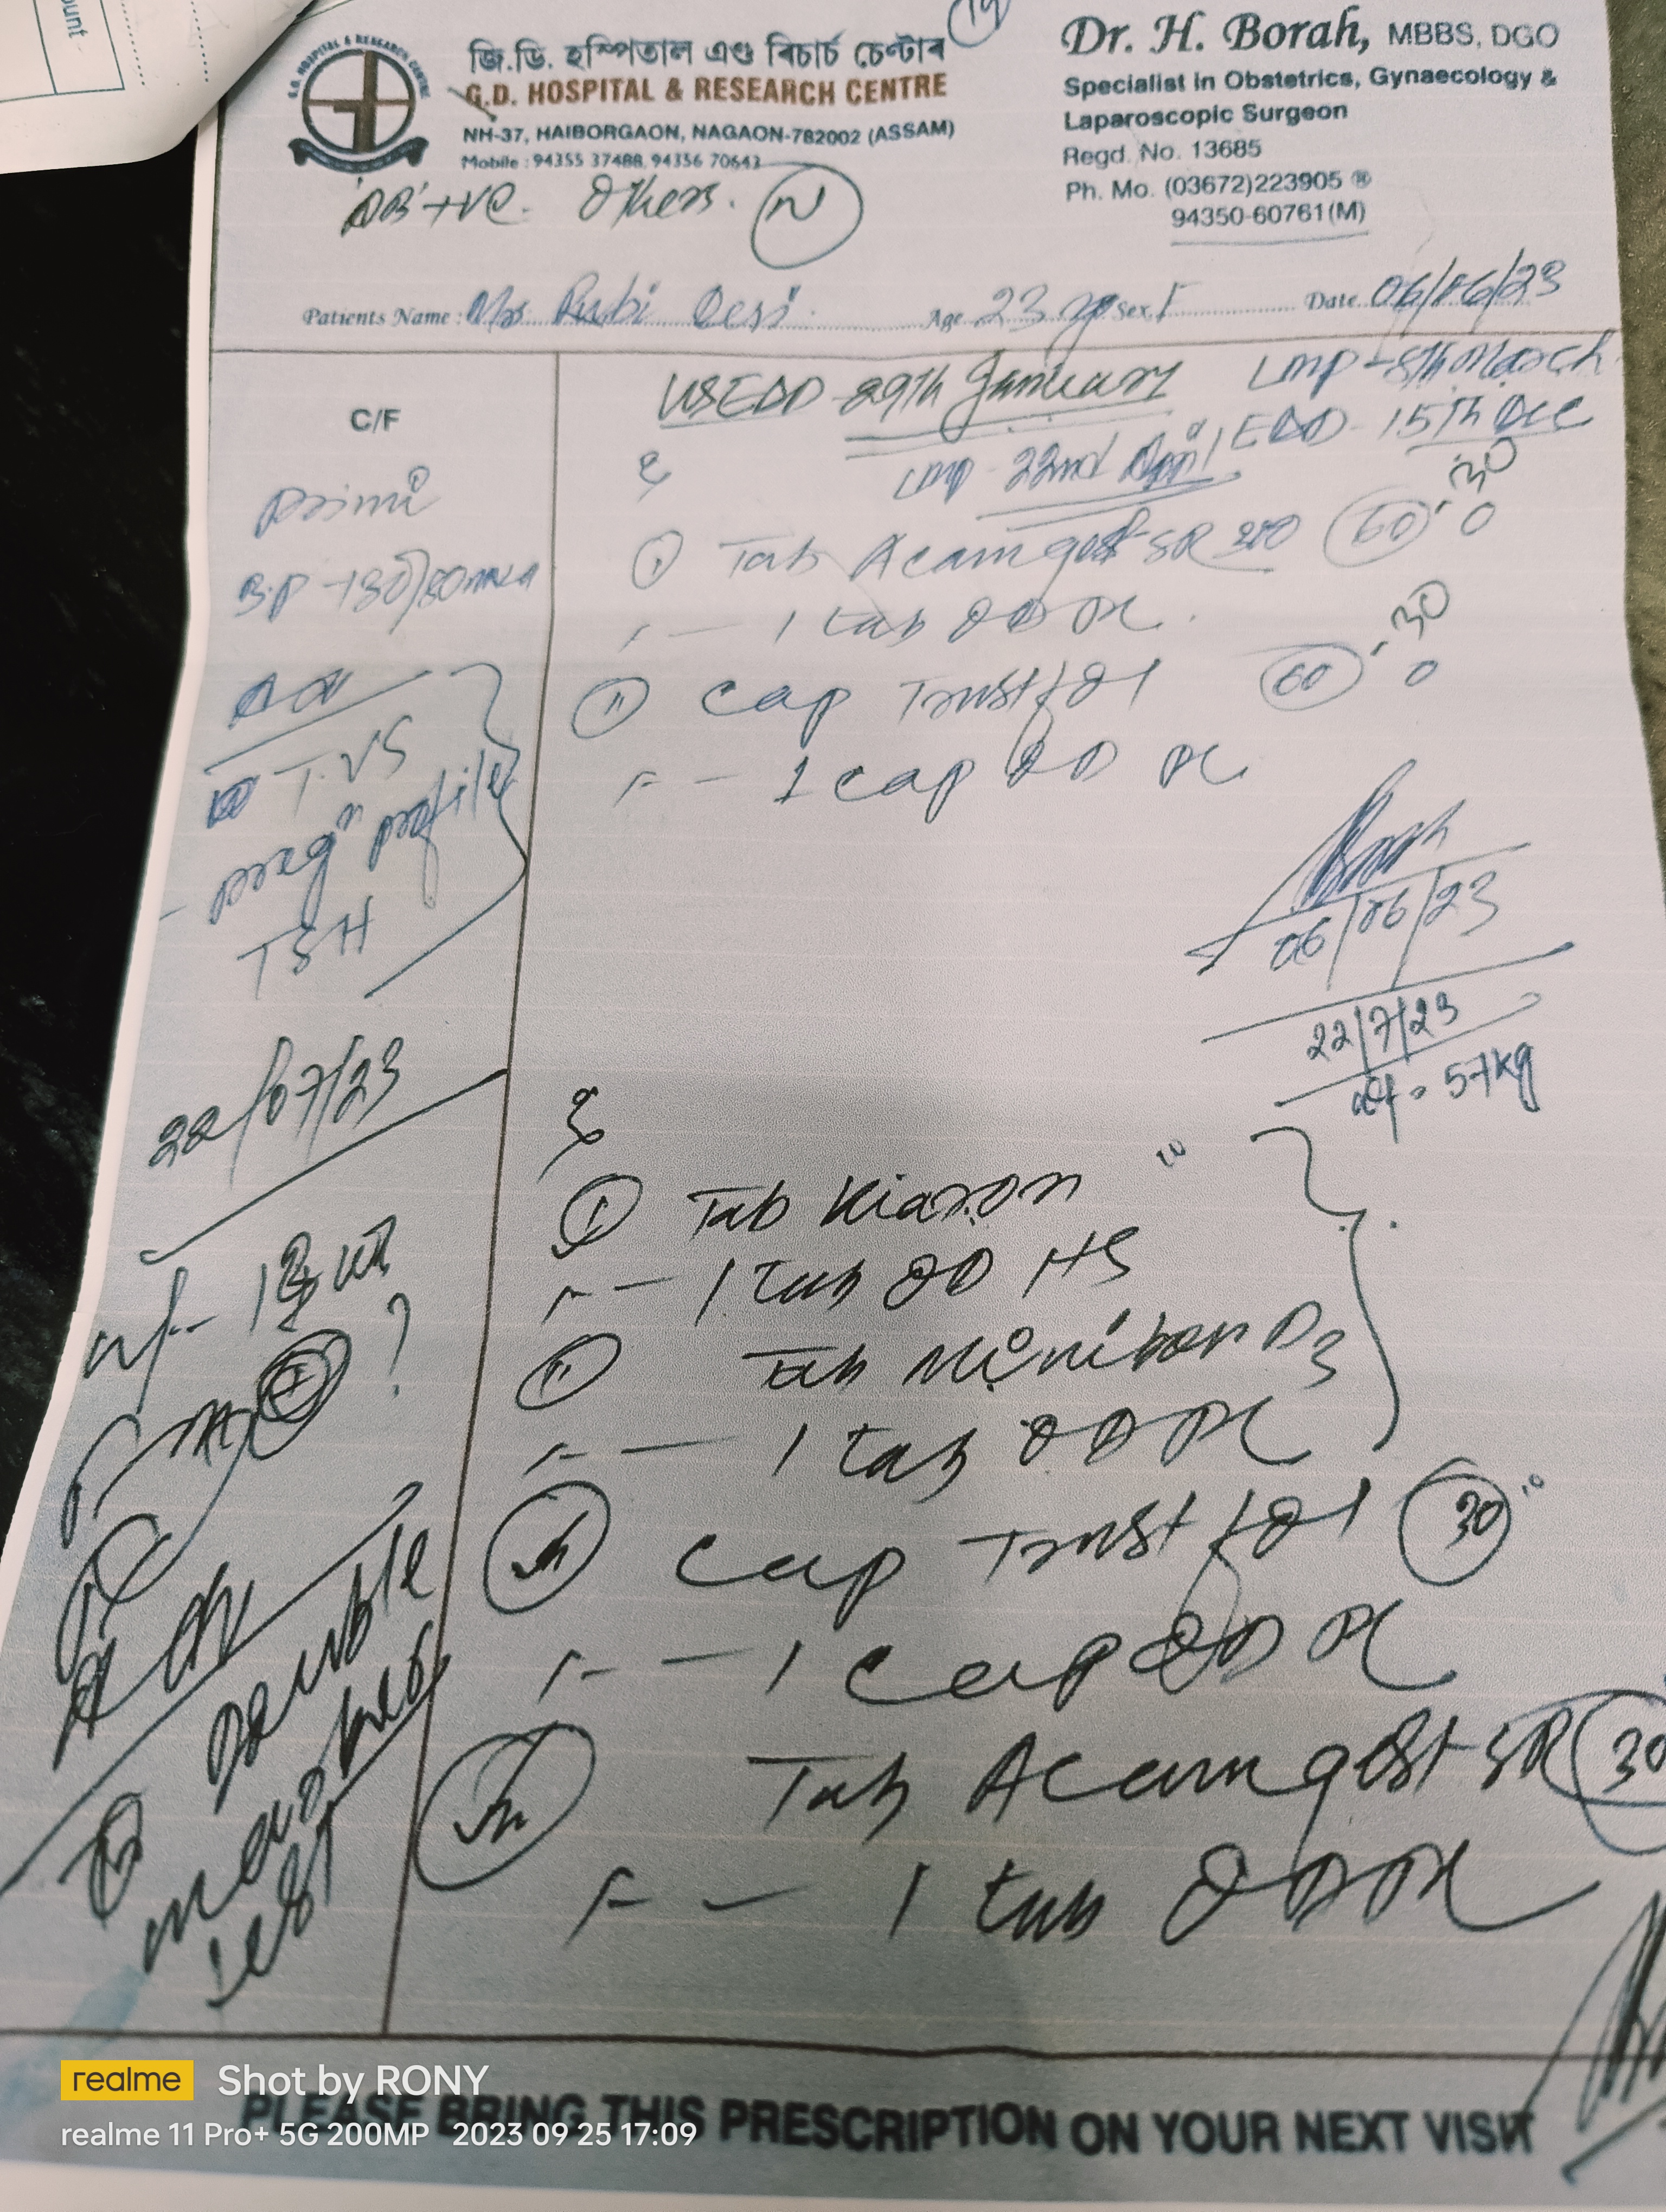 জি.ডি. হস্পিতাল এণ্ড ৰিচাৰ্চ চেণ্টাৰ
G.D. HOSPITAL & RESEARCH CENTRE
NH-37, HAIBORGAON, NAGAON-782002 (ASSAM)
Mobile : 94355 37488, 94356 70643
Dr. H. Borah, MBBS, DGO
Specialist in Obstetrics, Gynaecology &
Laparoscopic Surgeon
Regd. No. 13685
Ph. Mo. (03672)223905 ®
94350-60761(M)
+ve. Others. N
Patients Name : Mrs Rubi Age 23 Sex F Date 06/06/23
C/F
Primi
B.P -130/80
T.VS
pregn profile
TSH
USEDD 29th January
LMP - 8th March
EDD - 15th Dec
LMP - 22nd April
Tab Acamgest SR 60 30
1 tab OD PC
Cap Trustfol 60 30
1 cap OD PC
06/06/23
22/7/23
wt = 57kg
22/07/23
Tab Kiaron
1 tab OD HS
Tab Minibon D3
1 tab OD PC
Cap Trustfol 30
1 cap OD PC
Tab Acamgest SR 30
1 tab OD PC
Double
marker
test
PLEASE BRING THIS PRESCRIPTION ON YOUR NEXT VISIT
realme Shot by RONY
realme 11 Pro+ 5G 200MP 2023 09 25 17:09